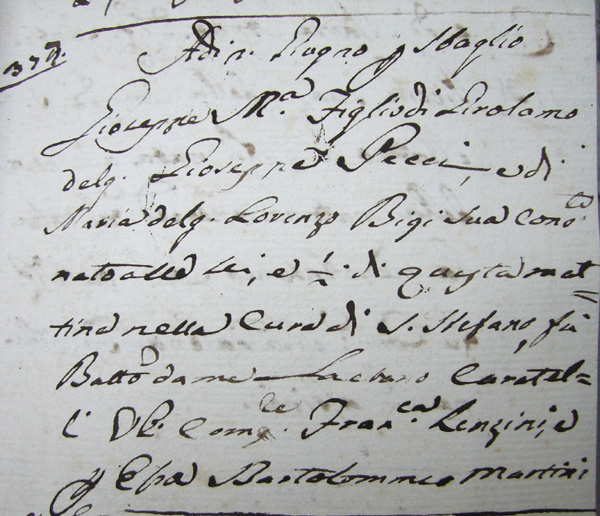 374.
Adi 12. Giugno p Sbaglio
Gioseppe M.a Figlio di Girolamo
del q. Gioseppe Pecci, e di
Maria del q. Lorenzo Bigi sua cons.te
nato alle sei, e ½ di questa mat=
tina nella Cura di S. Stefano, fù
Batt.o da me Curatel=
li Comp.le Fran.ca Lenzini, e
p Essa Bartolommeo Martini